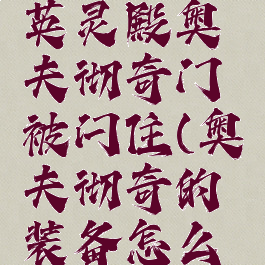 英灵殿奥
夫彻奇门
被闩住(奥
夫彻奇的
装备怎么